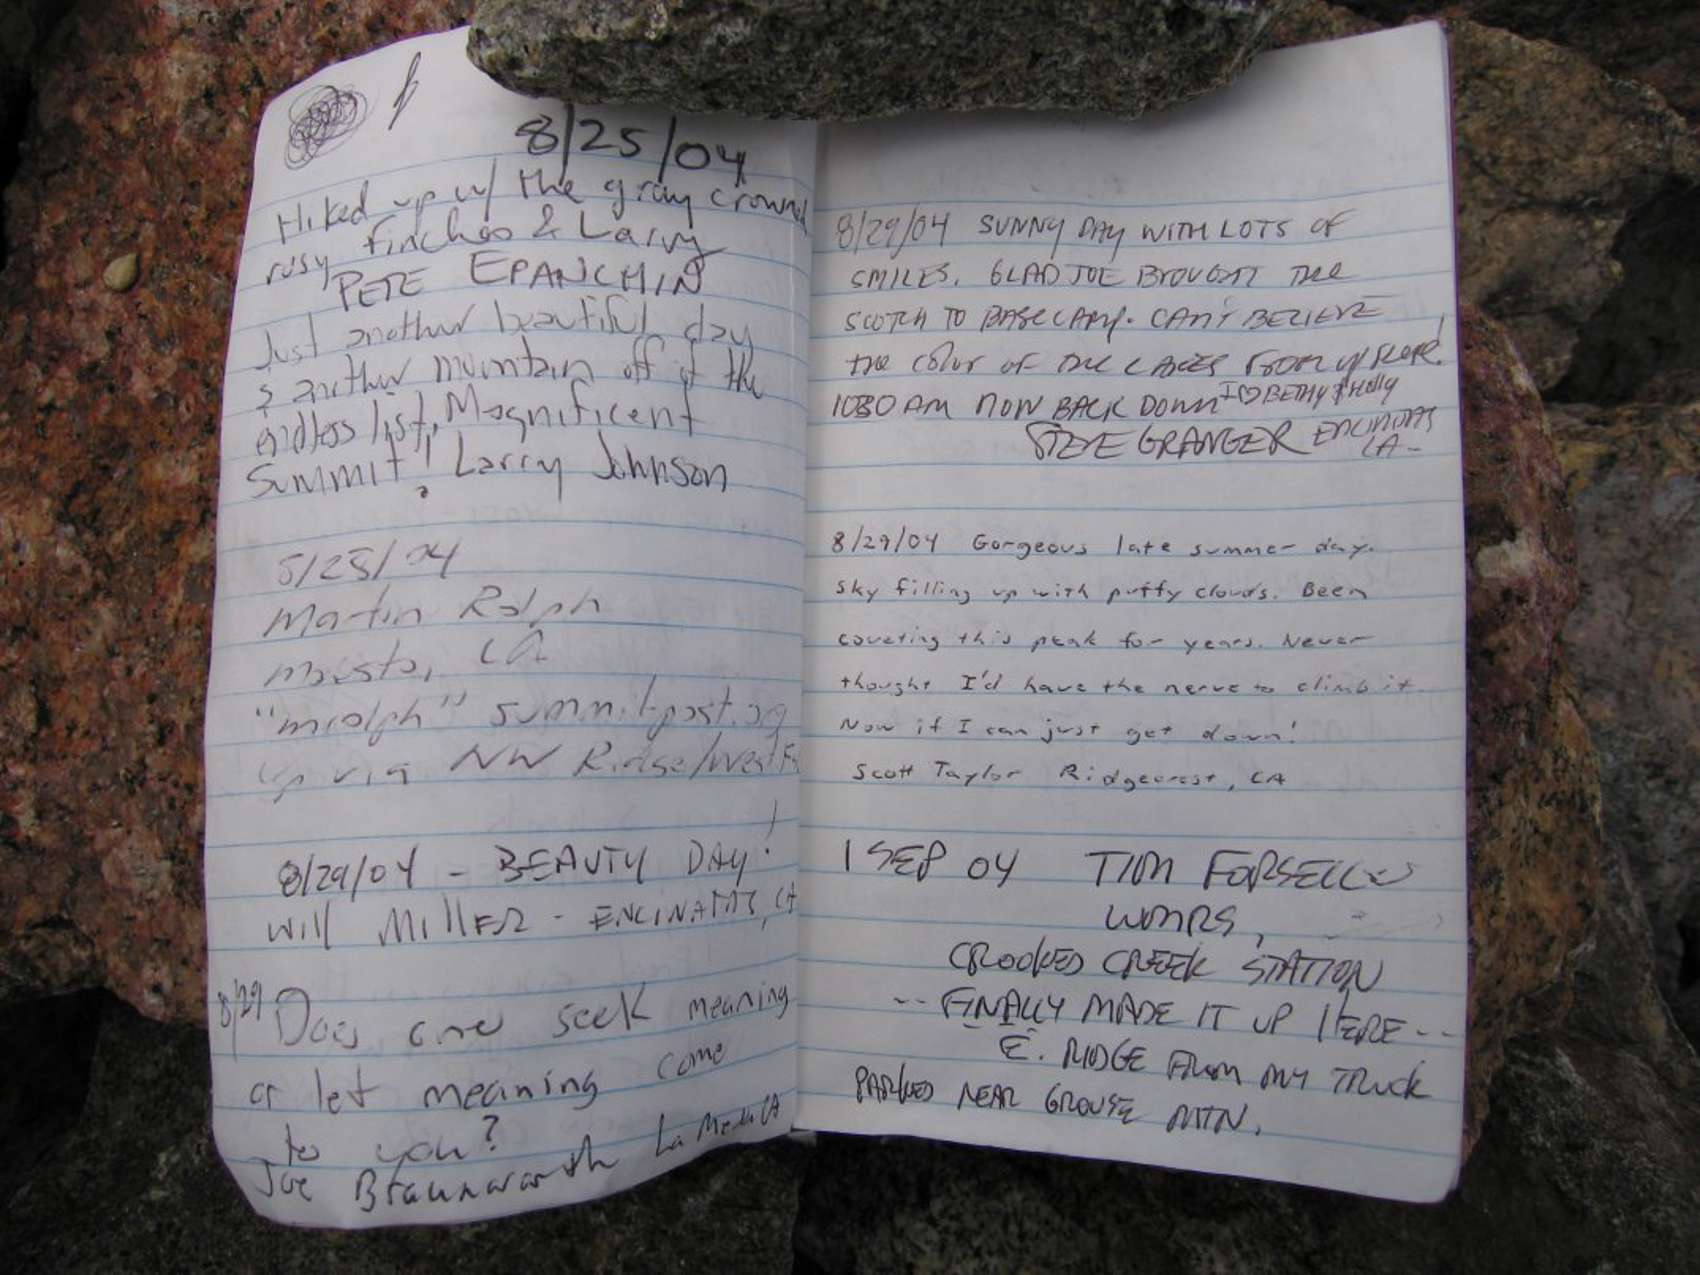 8/25/04
Hiked up w/ the gray crowned
rosy finches & Larry
PETE EPANCHIN
Just another beautiful day
& another mountain off of the
endless list, Magnificent
Summit! Larry Johnson
8/28/04
Martin Ralph
CA
"mralph" summitpost.org
up via NW Ridge/West
8/29/04 - BEAUTY DAY!
Will MILLER - ENCINITAS, CA
8/29 Does one seek meaning
or let meaning come
to you?
Joe Braunwarth La Mesa CA
8/29/04 SUNNY DAY WITH LOTS OF
SMILES. GLAD JOE BROUGHT THE
SCOTCH TO BASECAMP. CAN'T BELIEVE
THE COLOR OF THE LAKES FROM UP HERE!
1030 AM NOW BACK DOWN I ♡ BETHY & HOLLY
STEVE GRANGER ENCINITAS
CA-
8/29/04 Gorgeous late summer day.
Sky filling up with puffy clouds. Been
coveting this peak for years. Never
thought I'd have the nerve to climb it.
Now if I can just get down!
Scott Taylor Ridgecrest, CA
1 SEP 04 TIM FORSELL
WMRS,
CROOKED CREEK STATION
-- FINALLY MADE IT UP HERE --
E. RIDGE FROM MY TRUCK
PARKED NEAR GROUSE MTN.